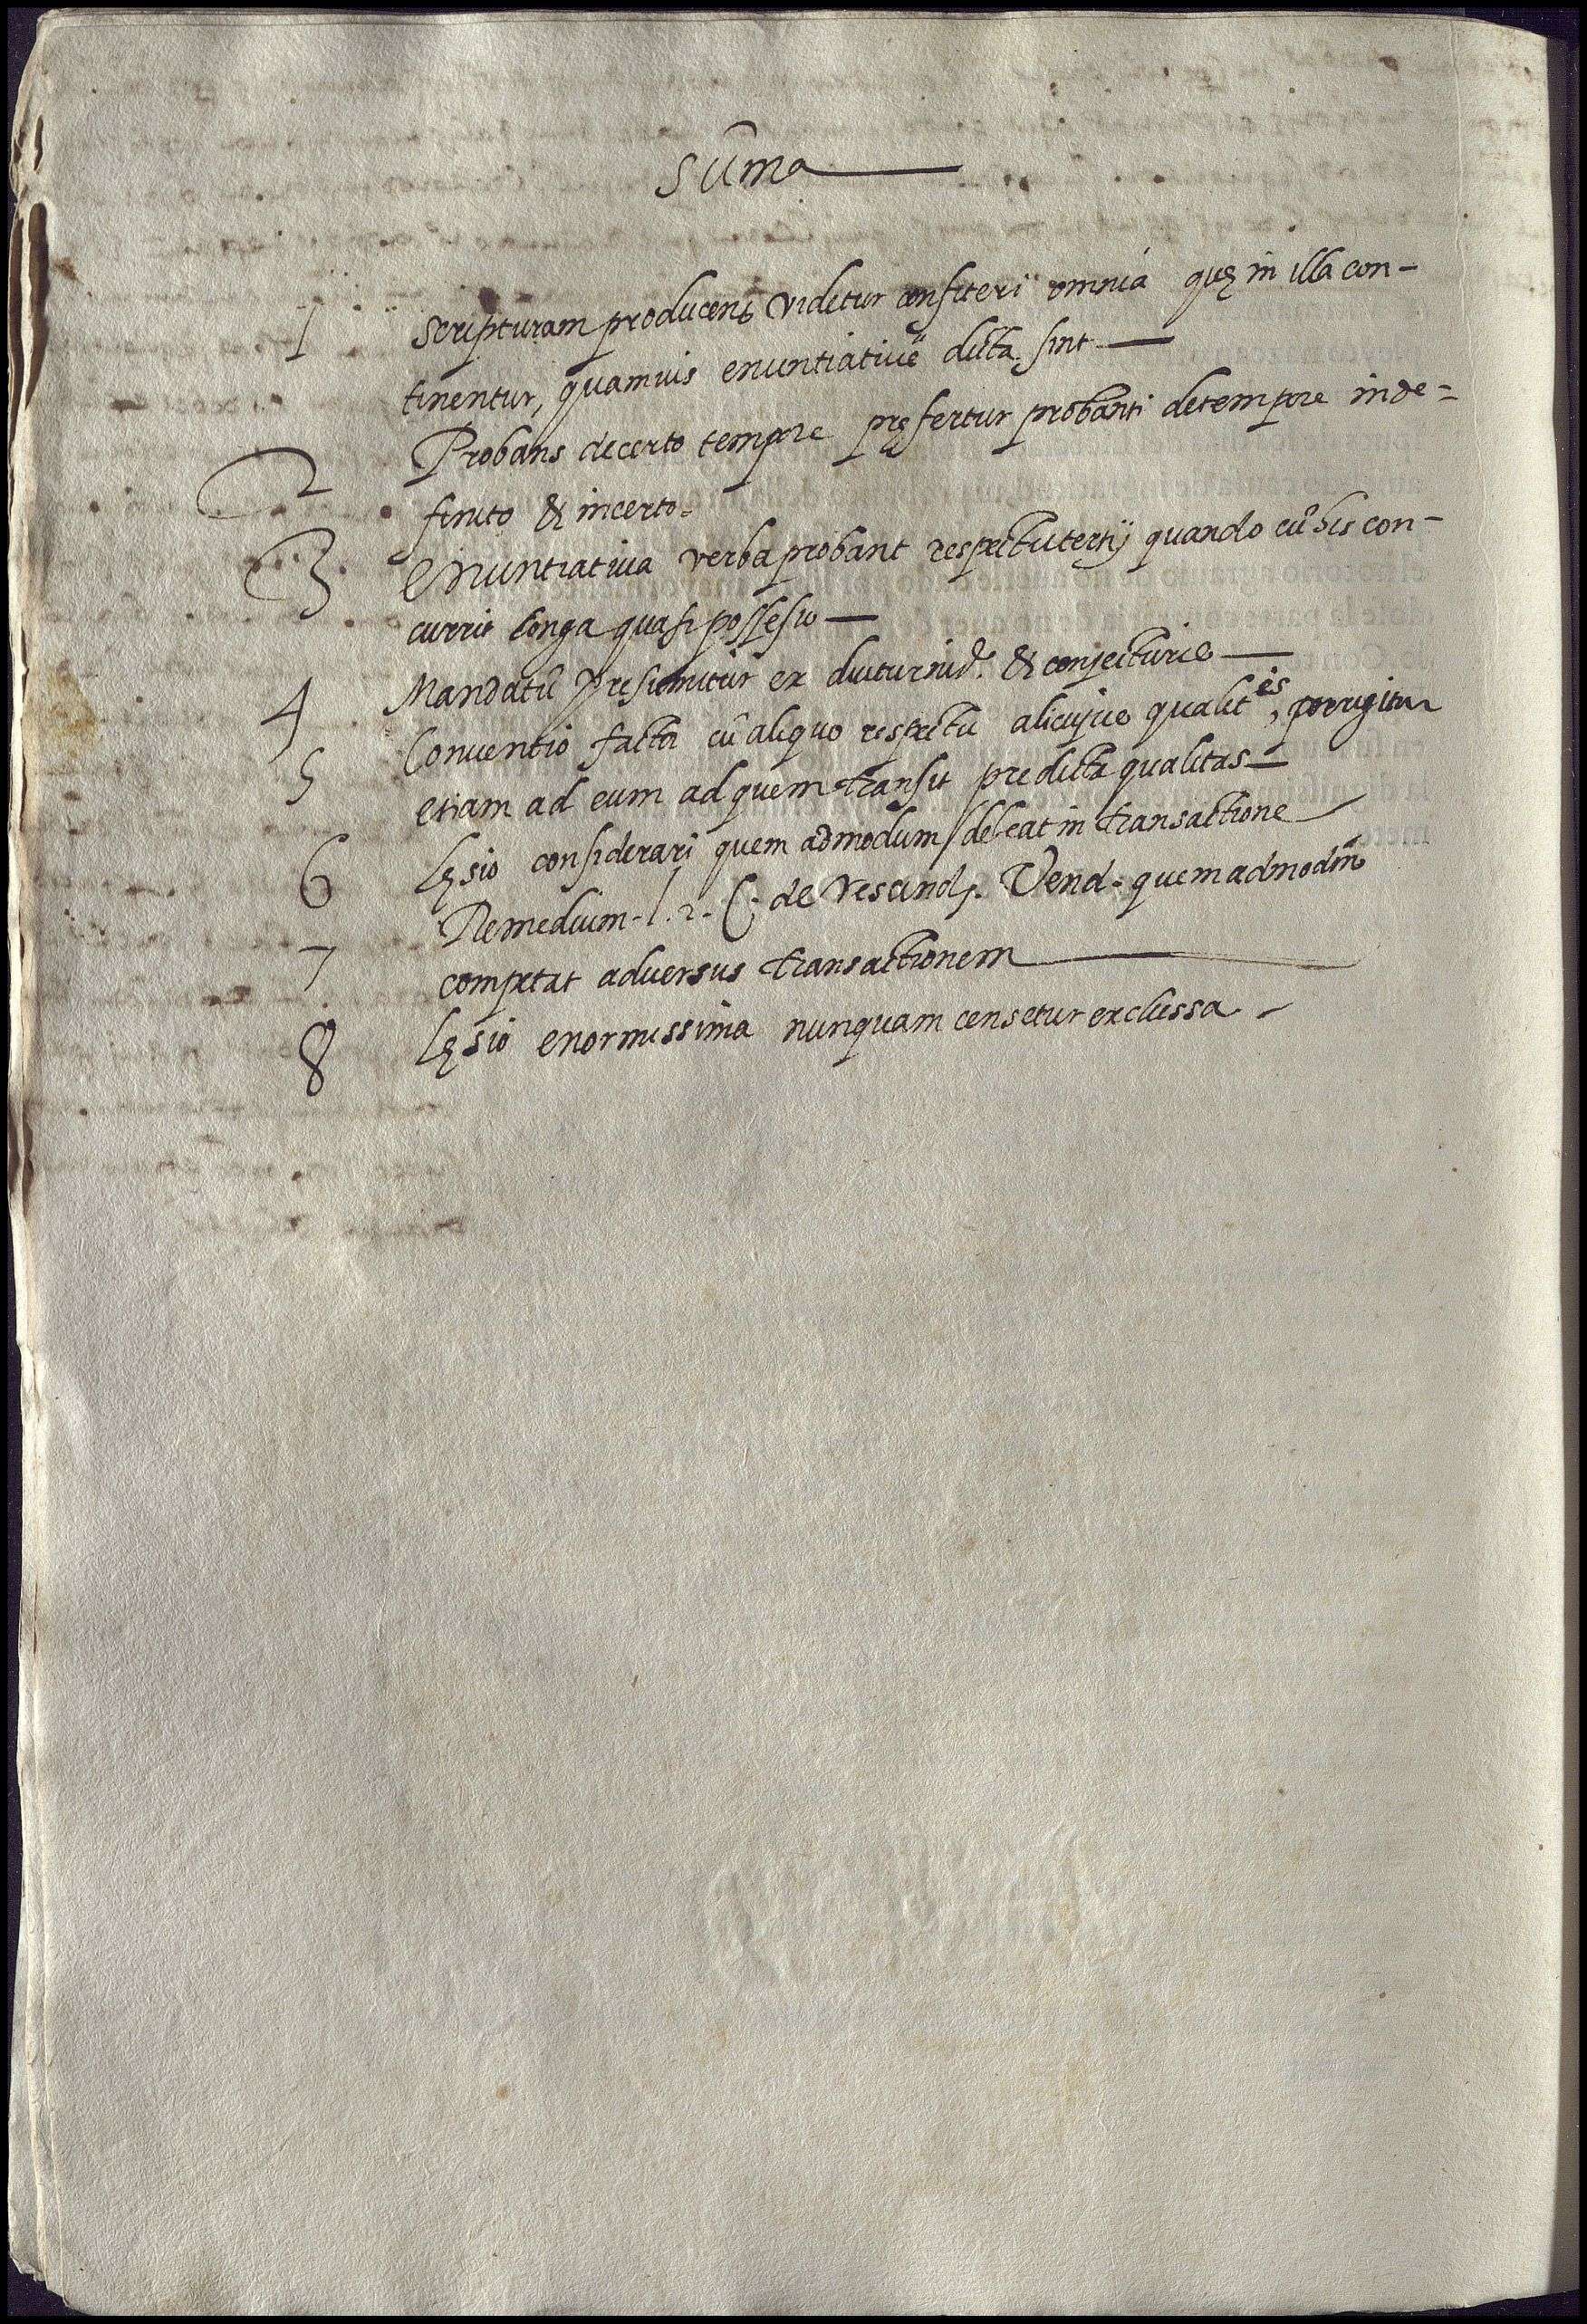 Sũma
1 Scripturam producens videtur confiteri omnia quę in illa con-
tinentur, quamuis enuntiatiuè dicta sint
2 Probans de certo tempore pręfertur probanti de tempore inde-
finito & incerto.
3 Enuntiatiua verba probant respectu tertij quando cũ his con-
currit longa quasi possesio
4 Mandatũ presumitur ex diuturnid. & conjecturis
5 Conuentio facta cũ aliquo respectu alicujus qualit.es, porrigitur
etiam ad eum ad quem transit predicta qualitas
6 lęsio considerari quem admodum debeat in transactione
7 Remedium l. 2. C. de rescind. Vend. quemadmodũ
competat adversus transactionem
8 lęsio enormissima nunquam censetur exclussa